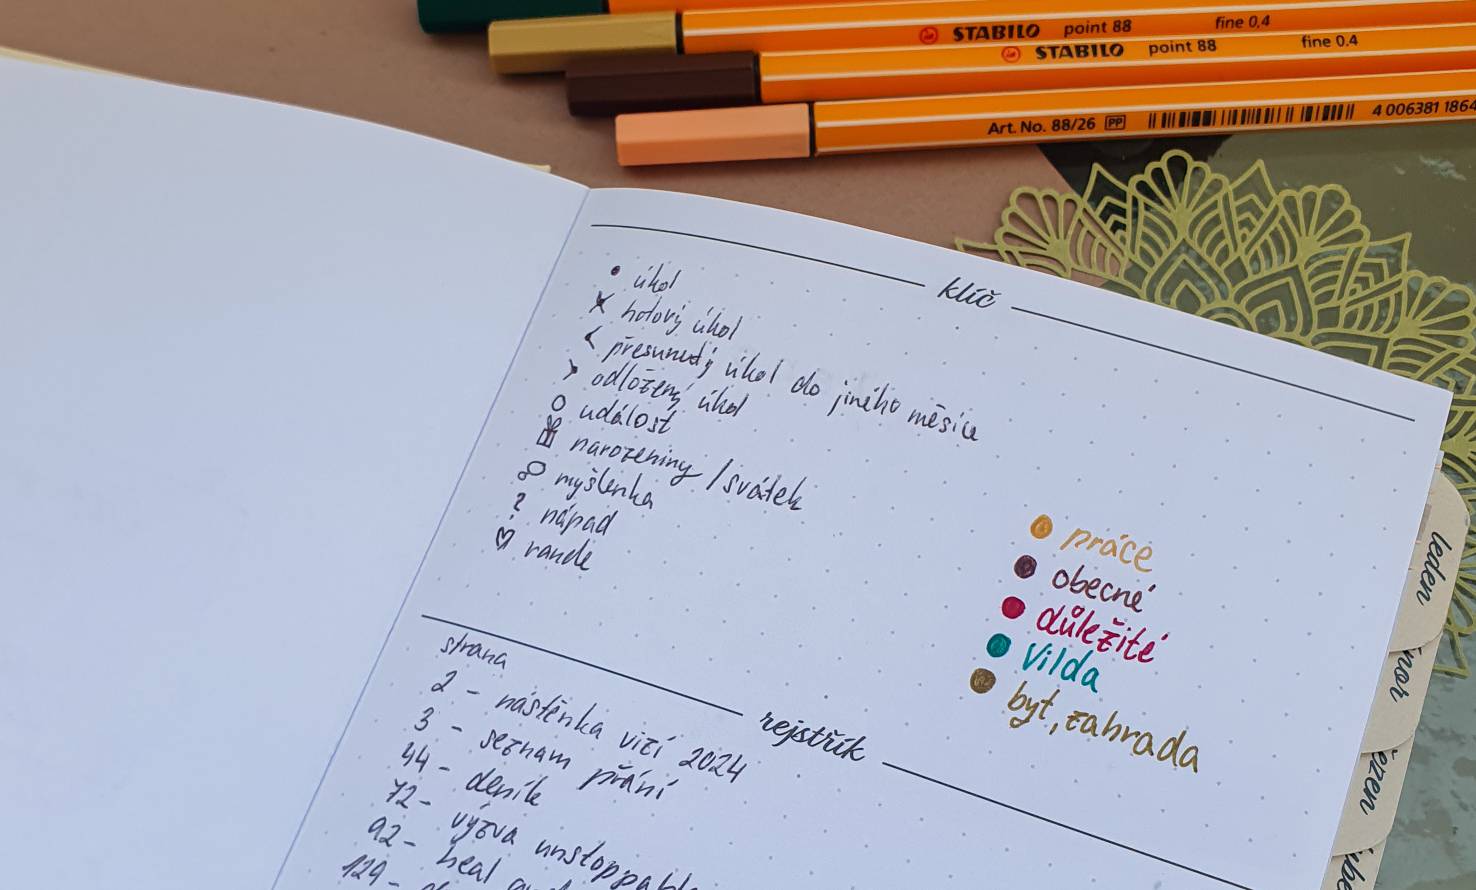 STABILO point 88 fine 0,4
STABILO point 88 fine 0,4
Art. No. 88/26 PP 4 006381 1864
klíč
úkol
hotový úkol
< přesunutý úkol do jiného měsíce
> odložený úkol
událost
narozeniny / svátek
myšlenka
? nápad
♡ rande
práce
obecné
důležité
Vilda
byt, zahrada
rejstřík
strana
2 - nástěnka vizí 2024
3 - seznam přání
44 - deník
72 - výzva unstoppabl
92 - heal
129 -
leden
nor
ezen